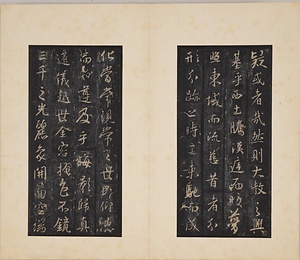 疑或者哉然則大教之興
基乎西土騰漢庭而皎夢
照東域而流慈昔者分
形分跡之時言未馳而成
化當常現常之世民仰德
而知遵及乎晦影歸真
遷儀越世金容掩色不鏡
三千之光麗象開圖空端